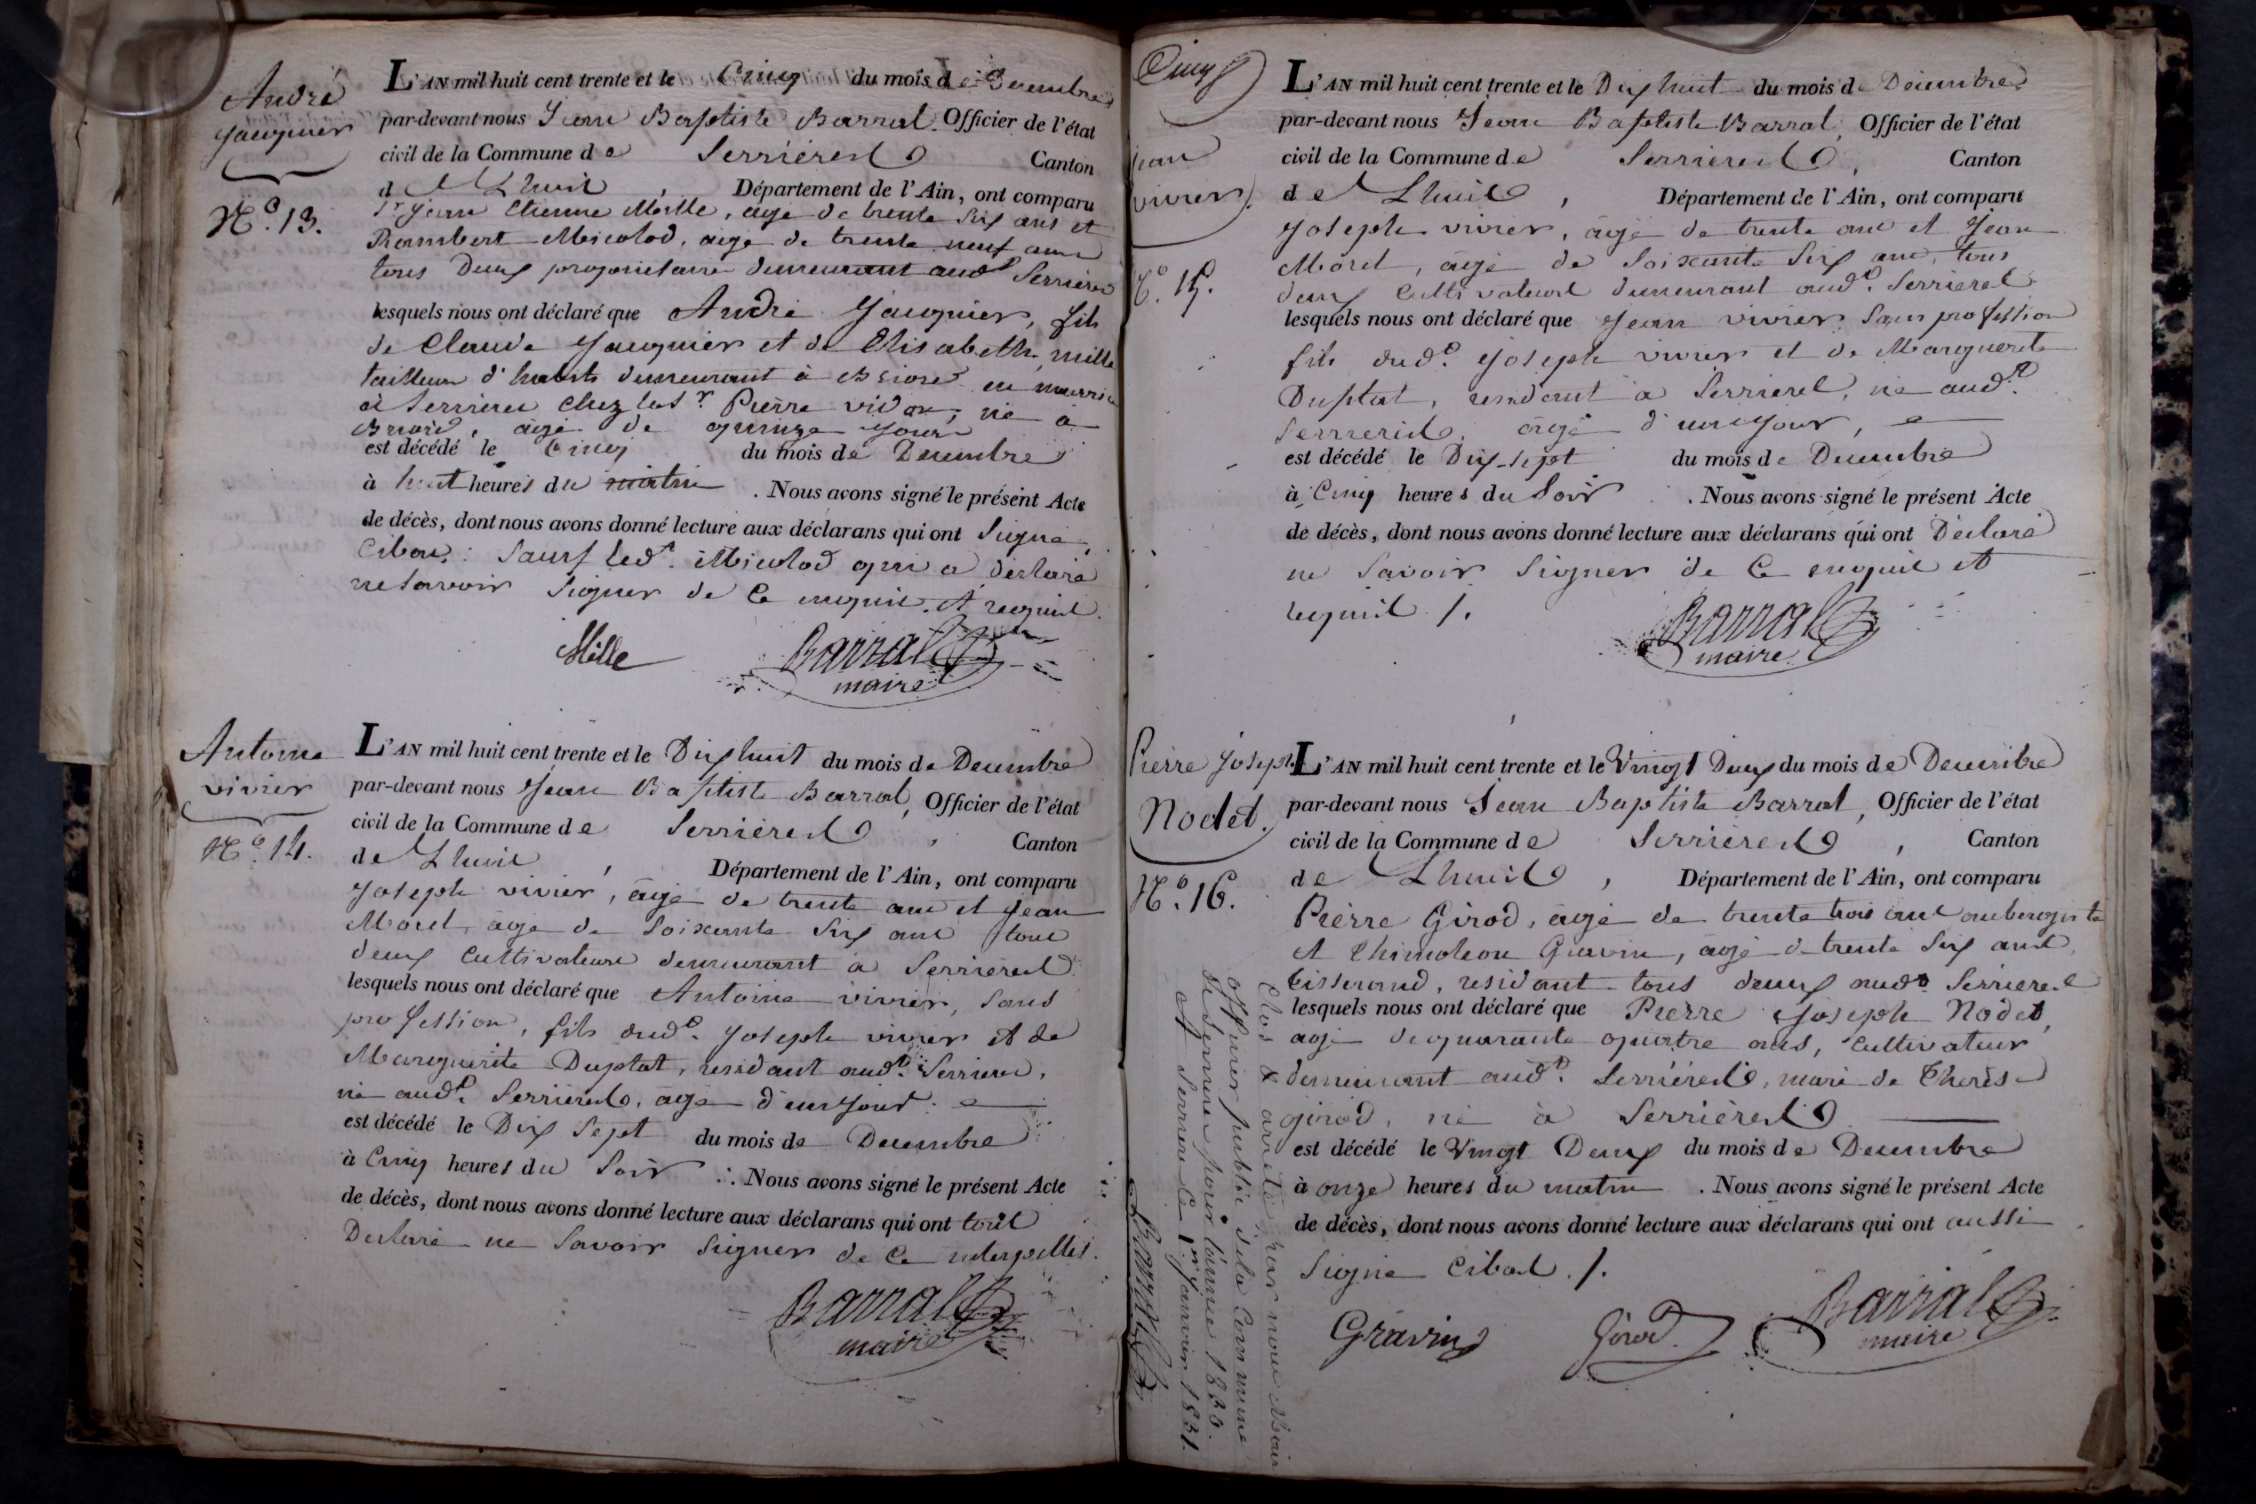 André
Jauquier
N.º 13.
L'AN mil huit cent trente et le Cinq du mois de Decembre
par-devant nous Jean Baptiste Barral, Officier de l'état
civil de la Commune de Serrières Canton
de Lhuis, Département de l'Ain, ont comparu
Sr Etienne Mille, agé de trente six ans et
Rambert Micolod, agé de trente neuf ans
tous deux proprietaires demeurant aud. Serrières
lesquels nous ont déclaré que André Jauquier, fils
de Claude Jauquier et de Elisabeth mille
tailleur d'habits demeurant à en nourrice
à Serrieres chez le Sr. Pierre né à
agé de quinze jours
est décédé le Cinq du mois de Decembre
à huit heures du matin. Nous avons signé le présent Acte
de décès, dont nous avons donné lecture aux déclarans qui ont Signé
Cibas: Sauf led.t Micolod qui a declaré
ne savoir Signer de Ce enquis et requis.
Mille Barral
maire
Antoine
vivier
N.º 14.
L'AN mil huit cent trente et le Dix huit du mois de Decembre
par-devant nous Jean Baptiste Barral, Officier de l'état
civil de la Commune de Serrières, Canton
de Lhuis, Département de l'Ain, ont comparu
Joseph vivier, agé de trente ans et Jean
Morel, agé de Soixante Six ans tous
deux Cultivateurs demeurant à Serrières
lesquels nous ont déclaré que Antoine vivier, Sans
profession, fils dud.t Joseph vivier et de
Marguerite Duplat, residant aud.t Serrieres,
né aud.t Serrières, agé d'un jour
est décédé le Dix Sept du mois de Decembre
à Cinq heures du Soir. Nous avons signé le présent Acte
de décès, dont nous avons donné lecture aux déclarans qui ont tous
Declaré ne Savoir Signer de Ce interpellés.
Barral
maire
Cinq
Jean
vivier
N.º 15.
L'AN mil huit cent trente et le Dix huit du mois de Decembre
par-devant nous Jean Baptiste Barral, Officier de l'état
civil de la Commune de Serrières, Canton
de Lhuis, Département de l'Ain, ont comparu
Joseph vivier, agé de trente ans et Jean
Morel, agé de Soixante Six ans, tous
deux Cultivateurs demeurant aud.t Serrieres
lesquels nous ont déclaré que Jean vivier Sans profession
fils dud.t Joseph vivier et de Marguerite
Duplat, residant à Serrieres, né aud.t
Serrieres, agé d'un jour,
est décédé le Dix-sept du mois de Decembre
à Cinq heures du Soir. Nous avons signé le présent Acte
de décès, dont nous avons donné lecture aux déclarans qui ont Declaré
ne Savoir Signer de Ce enquis et
requis /.
Barral
maire
Pierre Joseph
Nodet.
N.º 16.
L'AN mil huit cent trente et le Vingt Deux du mois de Decembre
par-devant nous Jean Baptiste Barral, Officier de l'état
civil de la Commune de Serrières, Canton
de Lhuis, Département de l'Ain, ont comparu
Pierre Girod, agé de trente trois ans aubergiste
et Thimoleon Gravin, agé de trente Six ans
tisserand, residant tous deux aud.t Serrieres
lesquels nous ont déclaré que Pierre Joseph Nodet,
agé de quarante quatre ans, Cultivateur
demeurant aud.t Serrières, mari de Therèse
girod, né à Serrières
est décédé le Vingt Deux du mois de Decembre
à onze heures du matin. Nous avons signé le présent Acte
de décès, dont nous avons donné lecture aux déclarans qui ont aussi
Signé Cibas /.
Gravin Girod Barral
maire
Clos & arrêté par nous Maire
officier public de la Commune
de Serrieres pour l'année 1830.
A Serrieres Ce 1.er Janvier 1831.
Barral